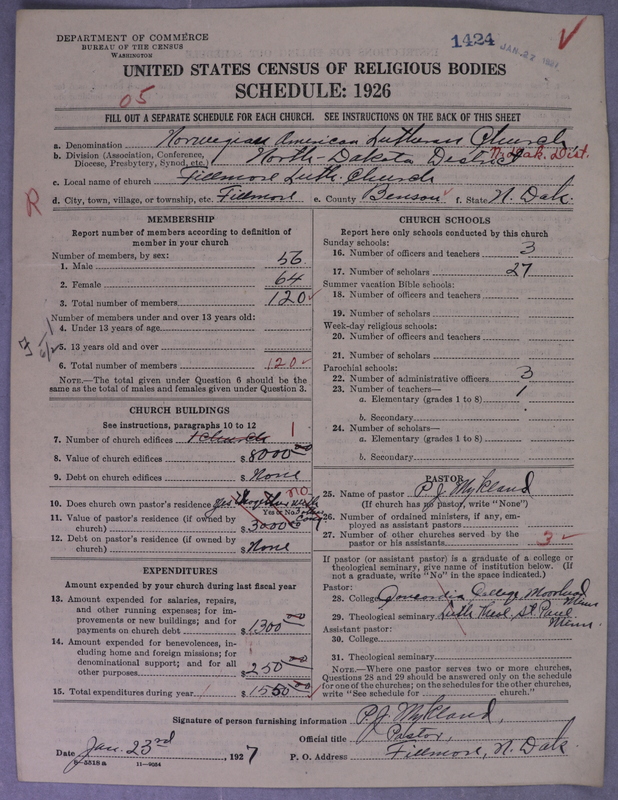 DEPARTMENT OF COMMERCE
BUREAU OF THE CENSUS
WASHINGTON
1424 JAN. 27 1927
UNITED STATES CENSUS OF RELIGIOUS BODIES
SCHEDULE: 1926
05
FILL OUT A SEPARATE SCHEDULE FOR EACH CHURCH. SEE INSTRUCTIONS ON THE BACK OF THIS SHEET
a. Denomination Norwegian American Lutheran Church
b. Division (Association, Conference, Diocese, Presbytery, Synod, etc.) North Dakota District N. Dak. Dist.
c. Local name of church Fillmore Luth. Church
R
d. City, town, village, or township, etc. Fillmore e. County Benson f. State N. Dak.
MEMBERSHIP
Report number of members according to definition of
member in your church
Number of members, by sex:
1. Male 56
2. Female 64
3. Total number of members 120
Number of members under and over 13 years old:
4. Under 13 years of age
5. 13 years old and over
6. Total number of members 120
NOTE.—The total given under Question 6 should be the
same as the total of males and females given under Question 3.
CHURCH BUILDINGS
See instructions, paragraphs 10 to 12
7. Number of church edifices 1 church 1
8. Value of church edifices $ 8000 00
9. Debt on church edifices $ None
10. Does church own pastor's residence Yes together with 3 other cong no
Yes or No
11. Value of pastor's residence (if owned by
church) $ 3000
12. Debt on pastor's residence (if owned by
church) $ None
EXPENDITURES
Amount expended by your church during last fiscal year
13. Amount expended for salaries, repairs,
and other running expenses; for im-
provements or new buildings; and for
payments on church debt $ 1300 00
14. Amount expended for benevolences, in-
cluding home and foreign missions; for
denominational support; and for all
other purposes $ 250 00
15. Total expenditures during year $ 1550 00
CHURCH SCHOOLS
Report here only schools conducted by this church
Sunday schools:
16. Number of officers and teachers 3
17. Number of scholars 27
Summer vacation Bible schools:
18. Number of officers and teachers
19. Number of scholars
Week-day religious schools:
20. Number of officers and teachers
21. Number of scholars
Parochial schools:
22. Number of administrative officers 3
23. Number of teachers—
a. Elementary (grades 1 to 8) 1
b. Secondary
24. Number of scholars—
a. Elementary (grades 1 to 8)
b. Secondary
PASTOR
25. Name of pastor P. J. Mykland
(If church has no pastor, write "None")
26. Number of ordained ministers, if any, em-
ployed as assistant pastors
27. Number of other churches served by the
pastor or his assistants 3
If pastor (or assistant pastor) is a graduate of a college or
theological seminary, give name of institution below. (If
not a graduate, write "No" in the space indicated.)
Pastor:
28. College Concordia College, Moorhead Minn
29. Theological seminary Luth. Theol., St. Paul Minn.
Assistant pastor:
30. College
31. Theological seminary
NOTE.—Where one pastor serves two or more churches,
Questions 28 and 29 should be answered only on the schedule
for one of the churches; on the schedules for the other churches,
write "See schedule for church."
Signature of person furnishing information P. J. Mykland,
Official title Pastor,
Date Jan. 23rd, 1927 P. O. Address Fillmore, N. Dak.
8-5518a 11-9054